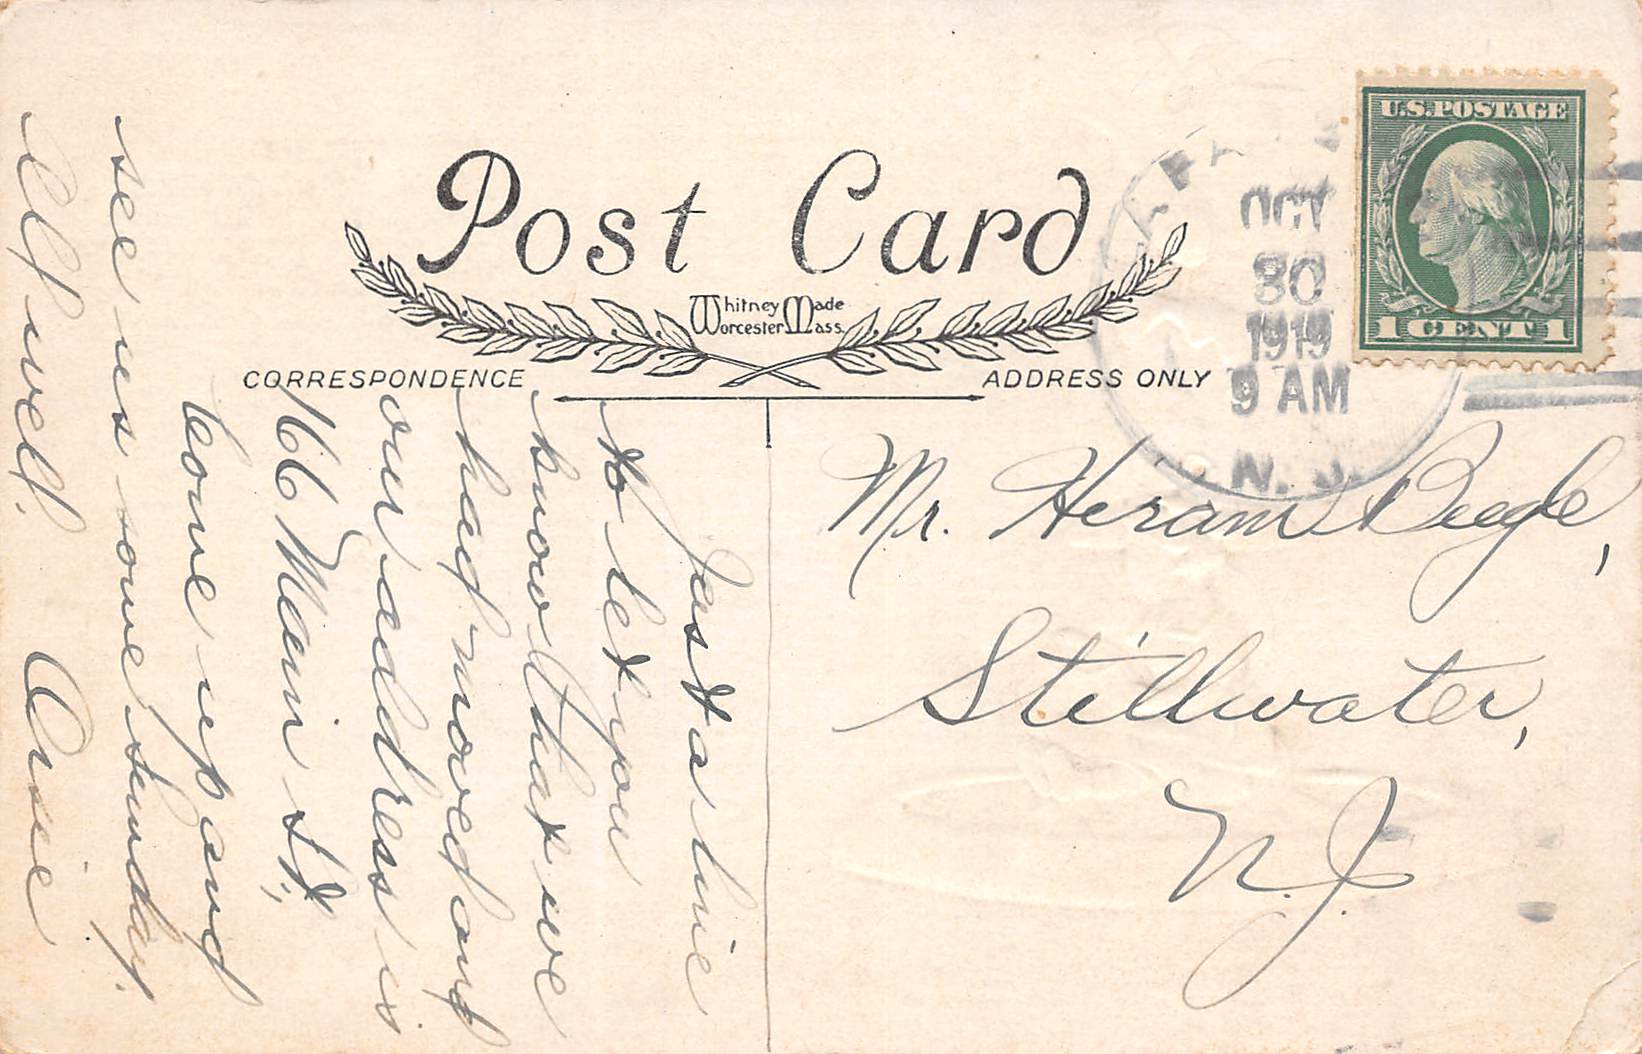 Post Card
Whitney Made
Worcester Mass.
CORRESPONDENCE
ADDRESS ONLY
U.S. POSTAGE
1 CENT 1
OCT
30
1919
9 AM
N. J.
Just a line
to let you
know that we
had moved and
our address is
166 Main St.
Come up and
see us some Sunday.
All well.
Mr. Hiram Beegle,
Stillwater,
N. J.